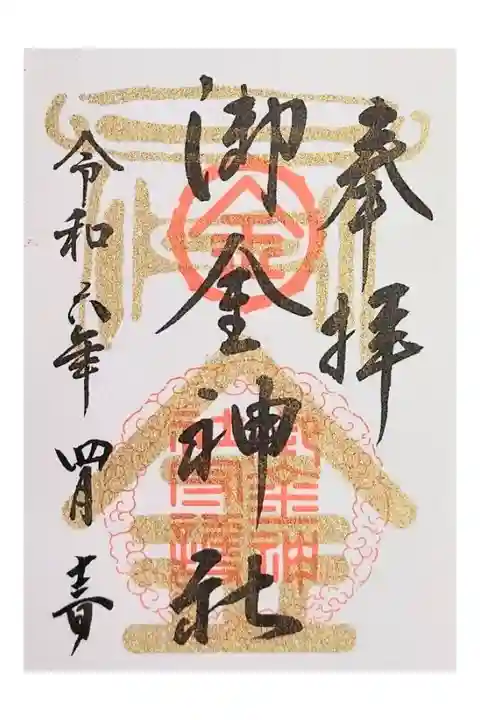 奉拝
御金神社
令和六年 四月
金
御金神
金